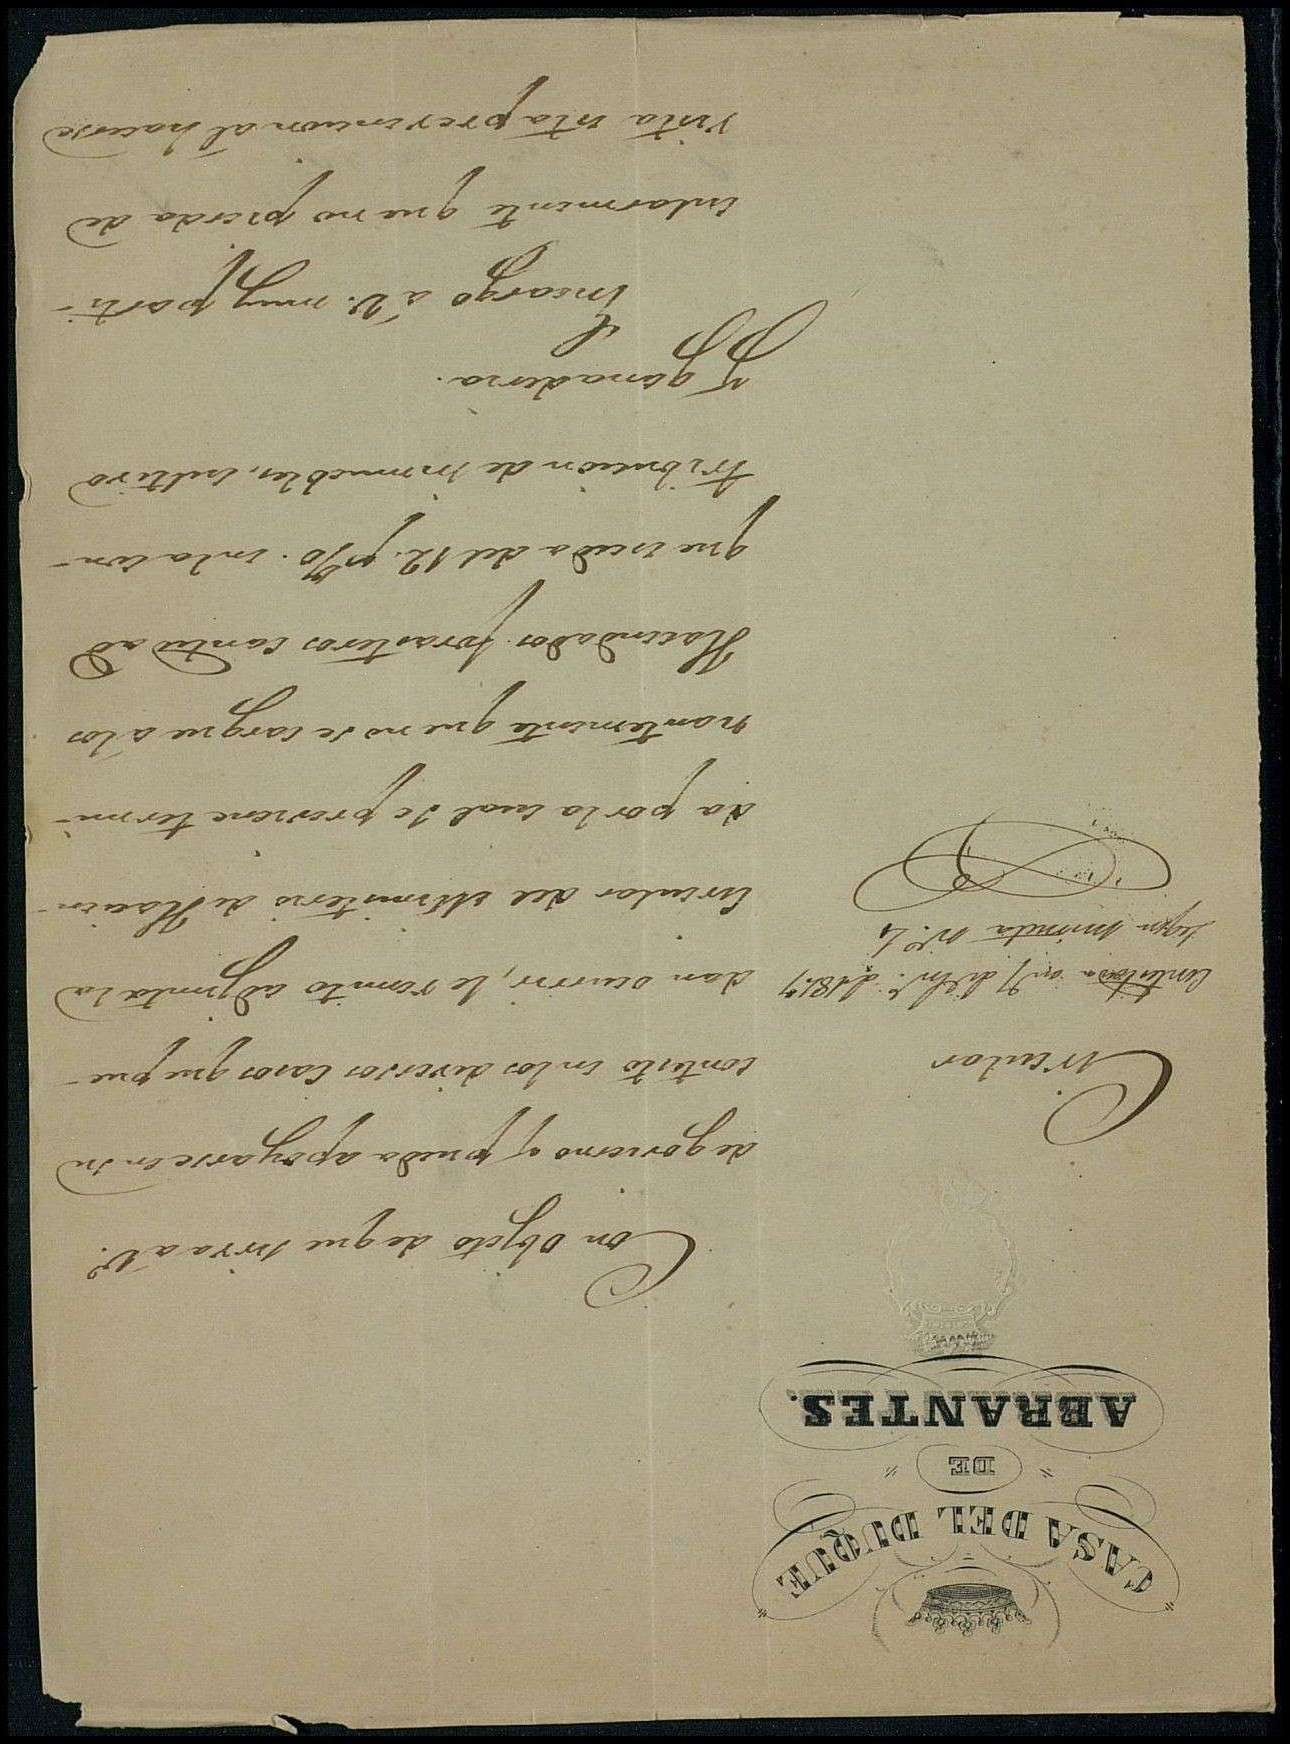 CASA DEL DUQUE
DE
ABRANTES.
Circular
Contestada en 7 de de 1857
segun minuta nº. 4
Con objeto de que sirva a V.
de govierno y pueda apoyarse en su
contesto en los diversos casos que pue-
dan ocurrir, le remito adjunta la
Circular del Ministerio de Hacien-
da por la cual se previene termi-
nantemente que no se cargue a los
Hacendados forasteros cantidad
que esceda del 12 p%. en la con-
tribucion de Inmuebles, cultivo
y ganaderia.
Encargo á V. muy parti-
cularmente que no pierda de
vista esta prevencion al hacerse